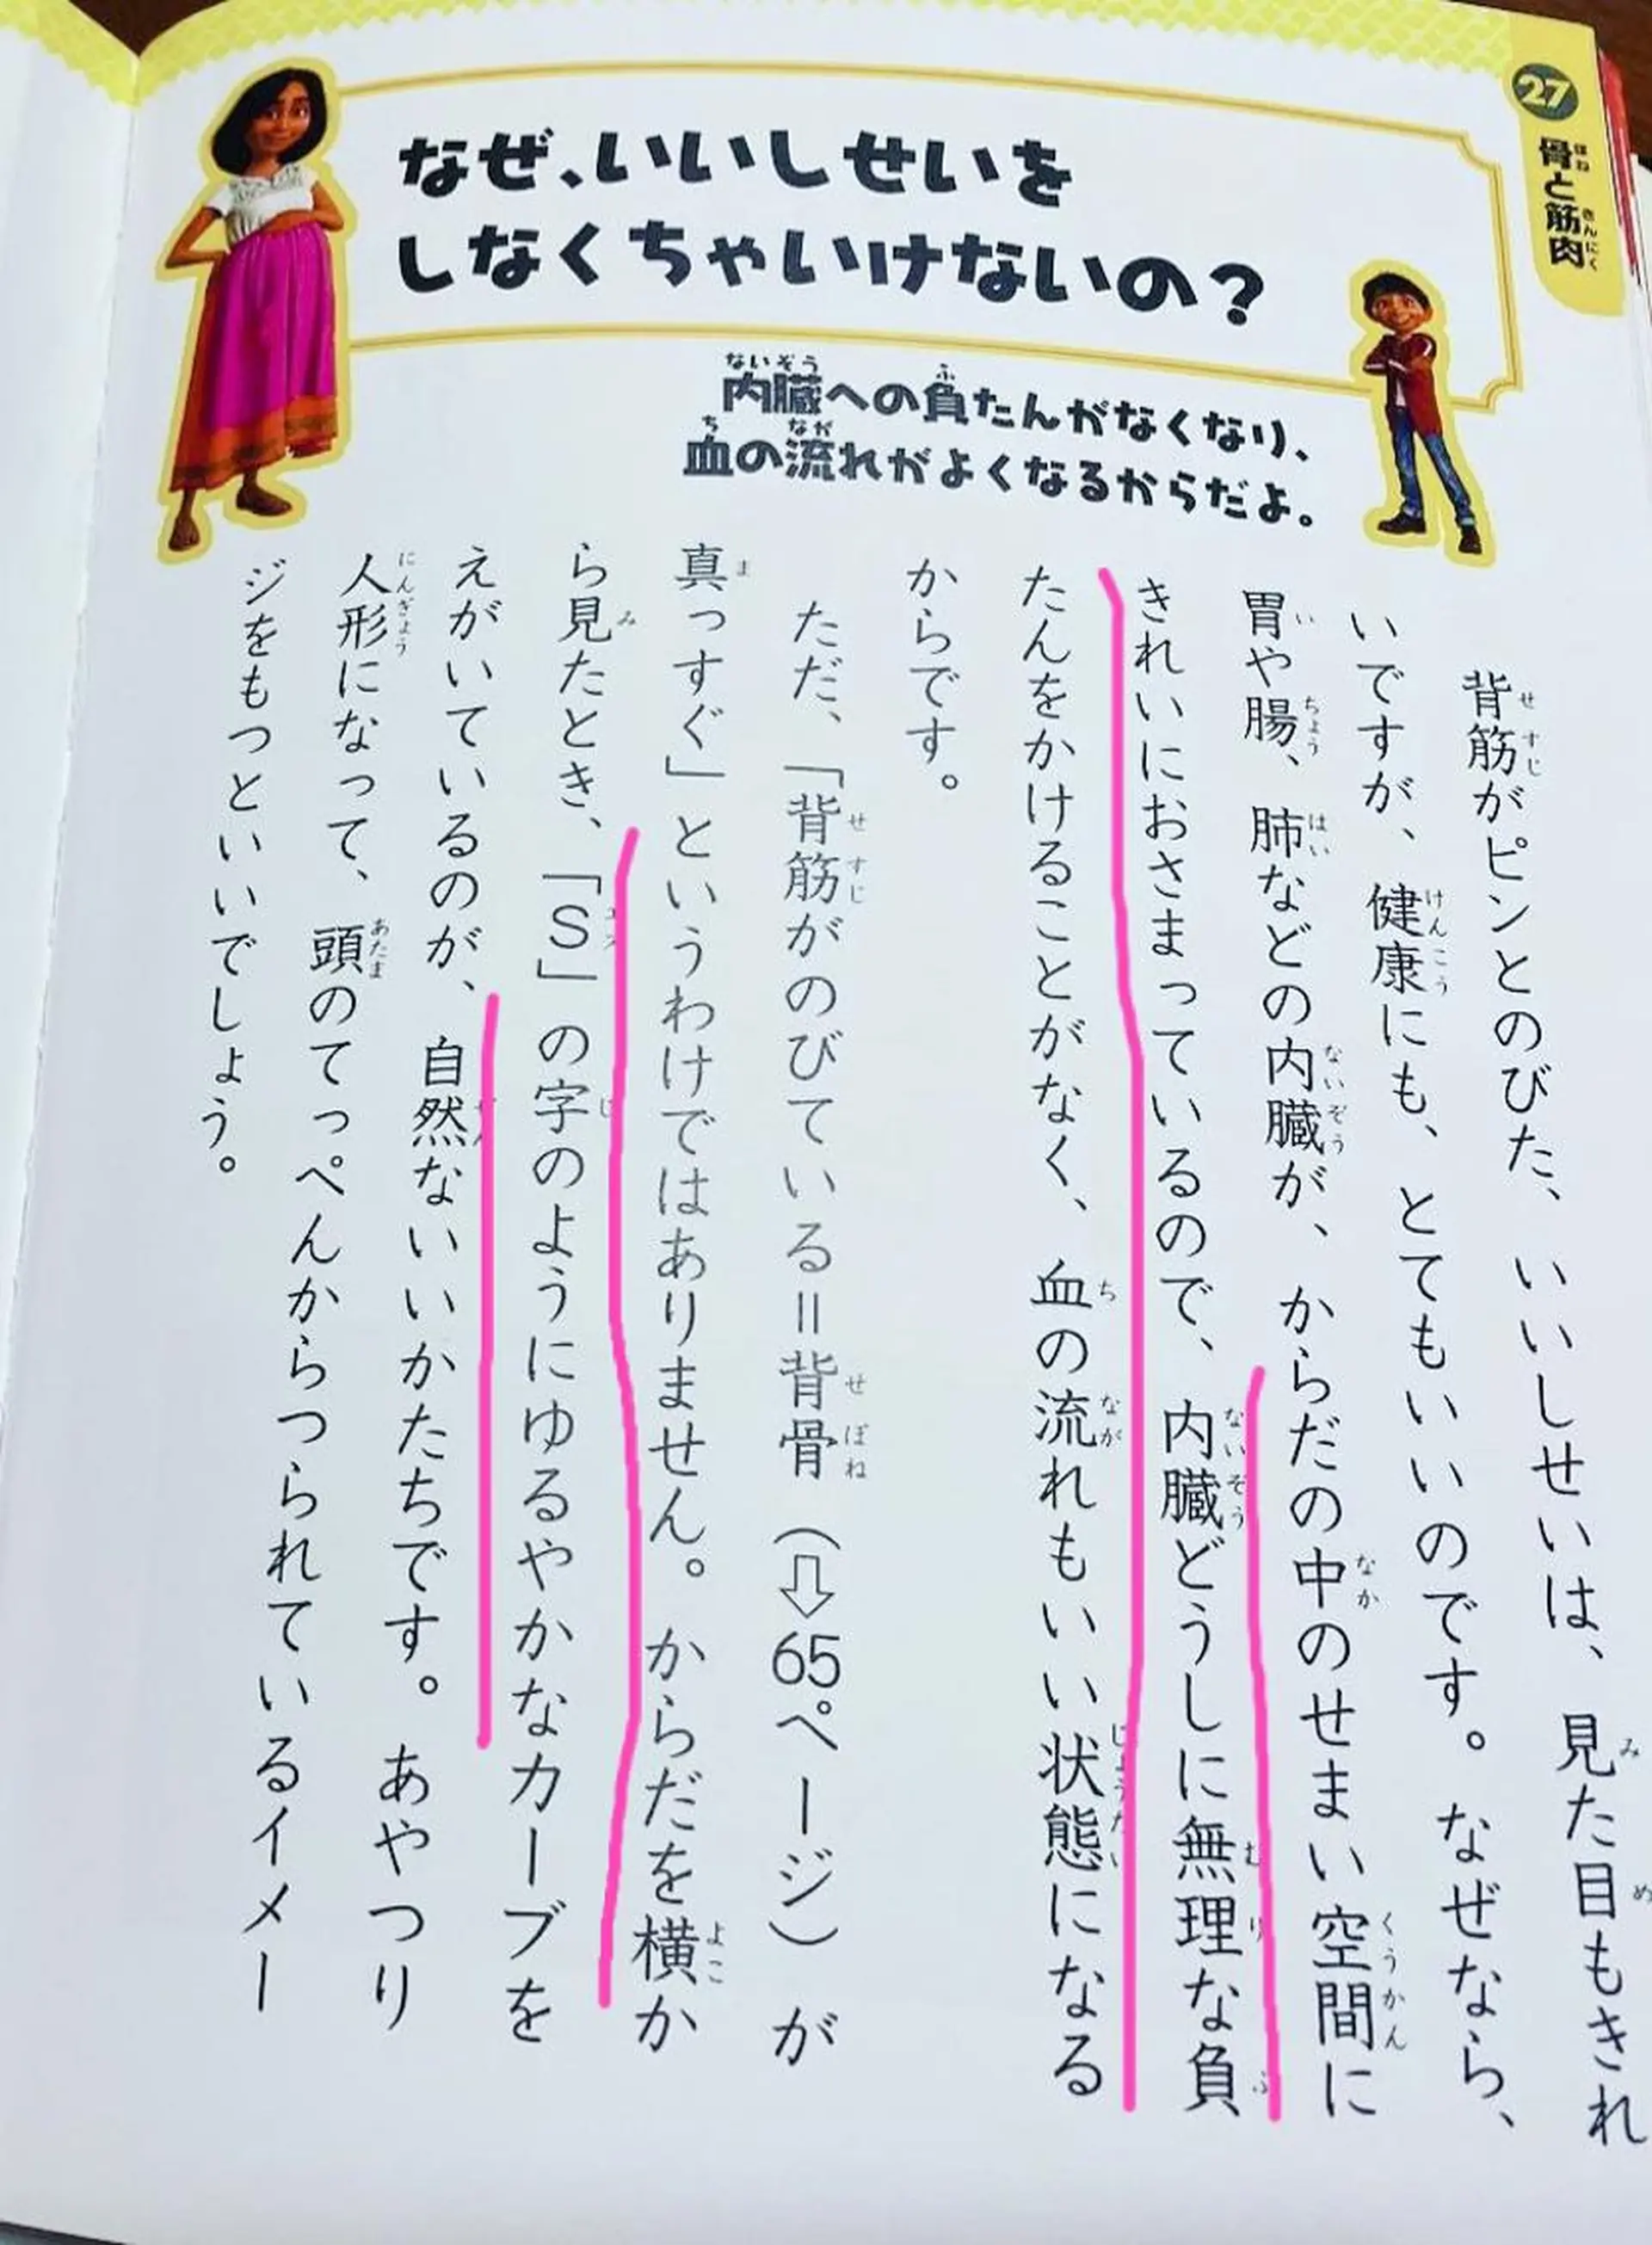 27
骨と筋肉
なぜ、いいしせいを
しなくちゃいけないの?
内臓への負たんがなくなり、
血の流れがよくなるからだよ。
背筋がピンとのびた、いいしせいは、見た目もきれ
いですが、健康にも、とてもいいのです。なぜなら、
胃や腸、肺などの内臓が、からだの中のせまい空間に
きれいにおさまっているので、内臓どうしに無理な負
たんをかけることがなく、血の流れもいい状態になる
からです。
ただ、「背筋がのびている=背骨(⇩65ページ)が
真っすぐ」というわけではありません。からだを横か
ら見たとき、「S」の字のようにゆるやかなカーブを
えがいているのが、自然ないいかたちです。あやつり
人形になって、頭のてっぺんからつられているイメー
ジをもつといいでしょう。